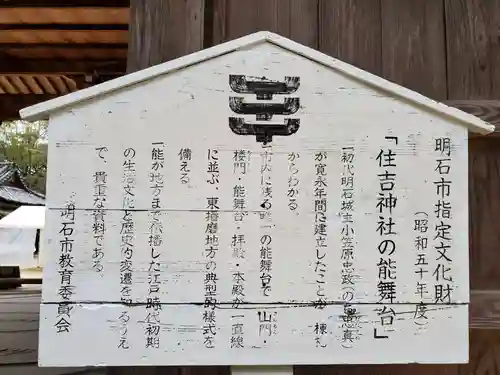 明石市指定文化財
(昭和五十年度)
「住吉神社の能舞台」
初代明石城主小笠原忠政(の
忠真)
が寛永年間に建立したことが、棟札
からわかる。
市内に残る唯一の能舞台で、山門・
楼門・能舞台・拝殿・本殿が一直線
に並ぶ、東播磨地方の典型的様式を
備える。
能が地方まで伝播した江戸時代初期
の生活文化と歴史的変遷を知るうえ
で、貴重な資料である。
明石市教育委員会